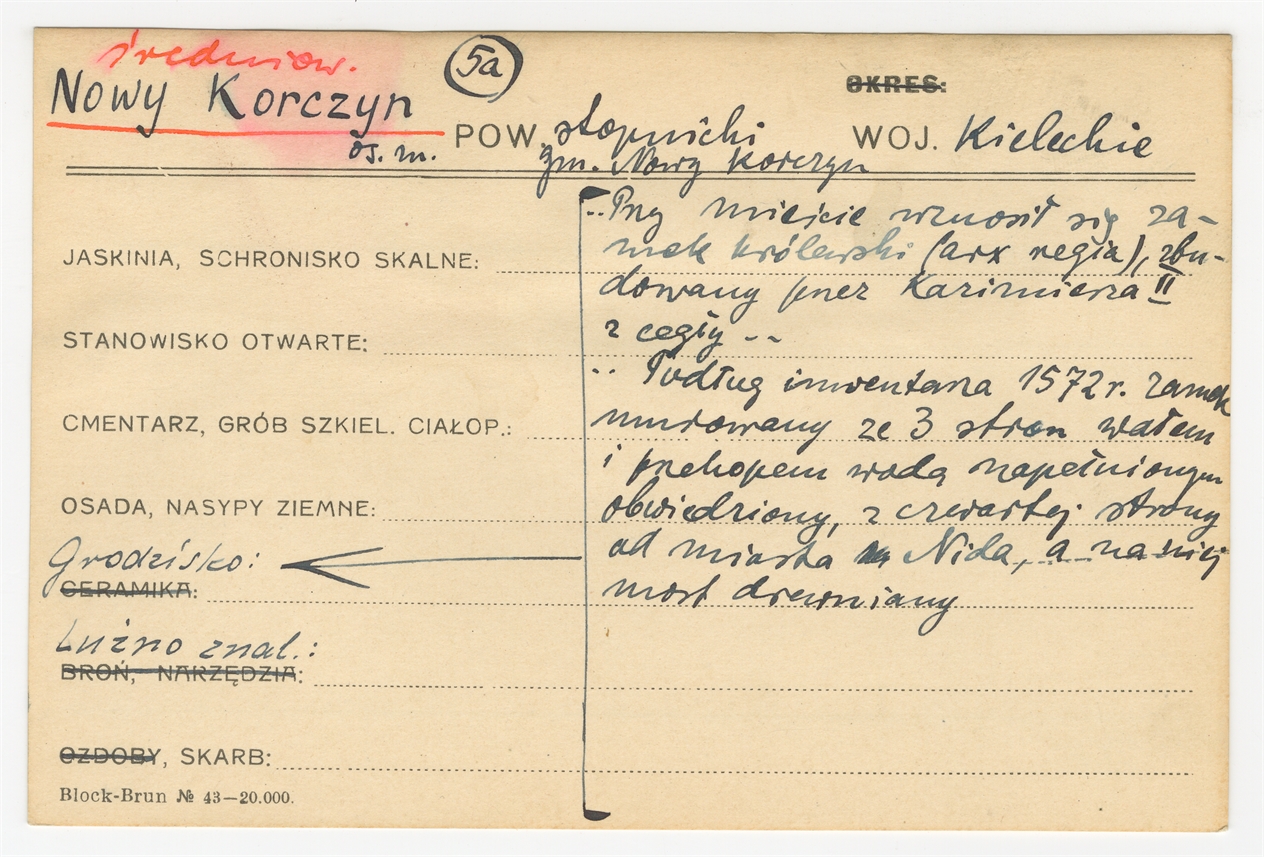 średniow.
Nowy Korczyn
5a
OKRES:
os. m.
POW. stopnicki
WOJ. Kieleckie
gm. Nowy Korczyn
JASKINIA, SCHRONISKO SKALNE:
STANOWISKO OTWARTE:
CMENTARZ, GRÓB SZKIEL. CIAŁOP.:
OSADA, NASYPY ZIEMNE:
Grodzisko:
CERAMIKA:
Luźno znal.:
BROŃ, NARZĘDZIA:
OZDOBY, SKARB:
Block-Brun № 43—20.000.
..Przy mieście wznosił się za-
mek królewski (arx regia), zbu-
dowany przez Kazimierza II
z cegły --
.. Podług inwentarza 1572 r. zamek
murowany ze 3 stron wałem
i przekopem wodą napełnionym
obwiedziony, z czwartej strony
od miasta Nida, a na niej
most drewniany